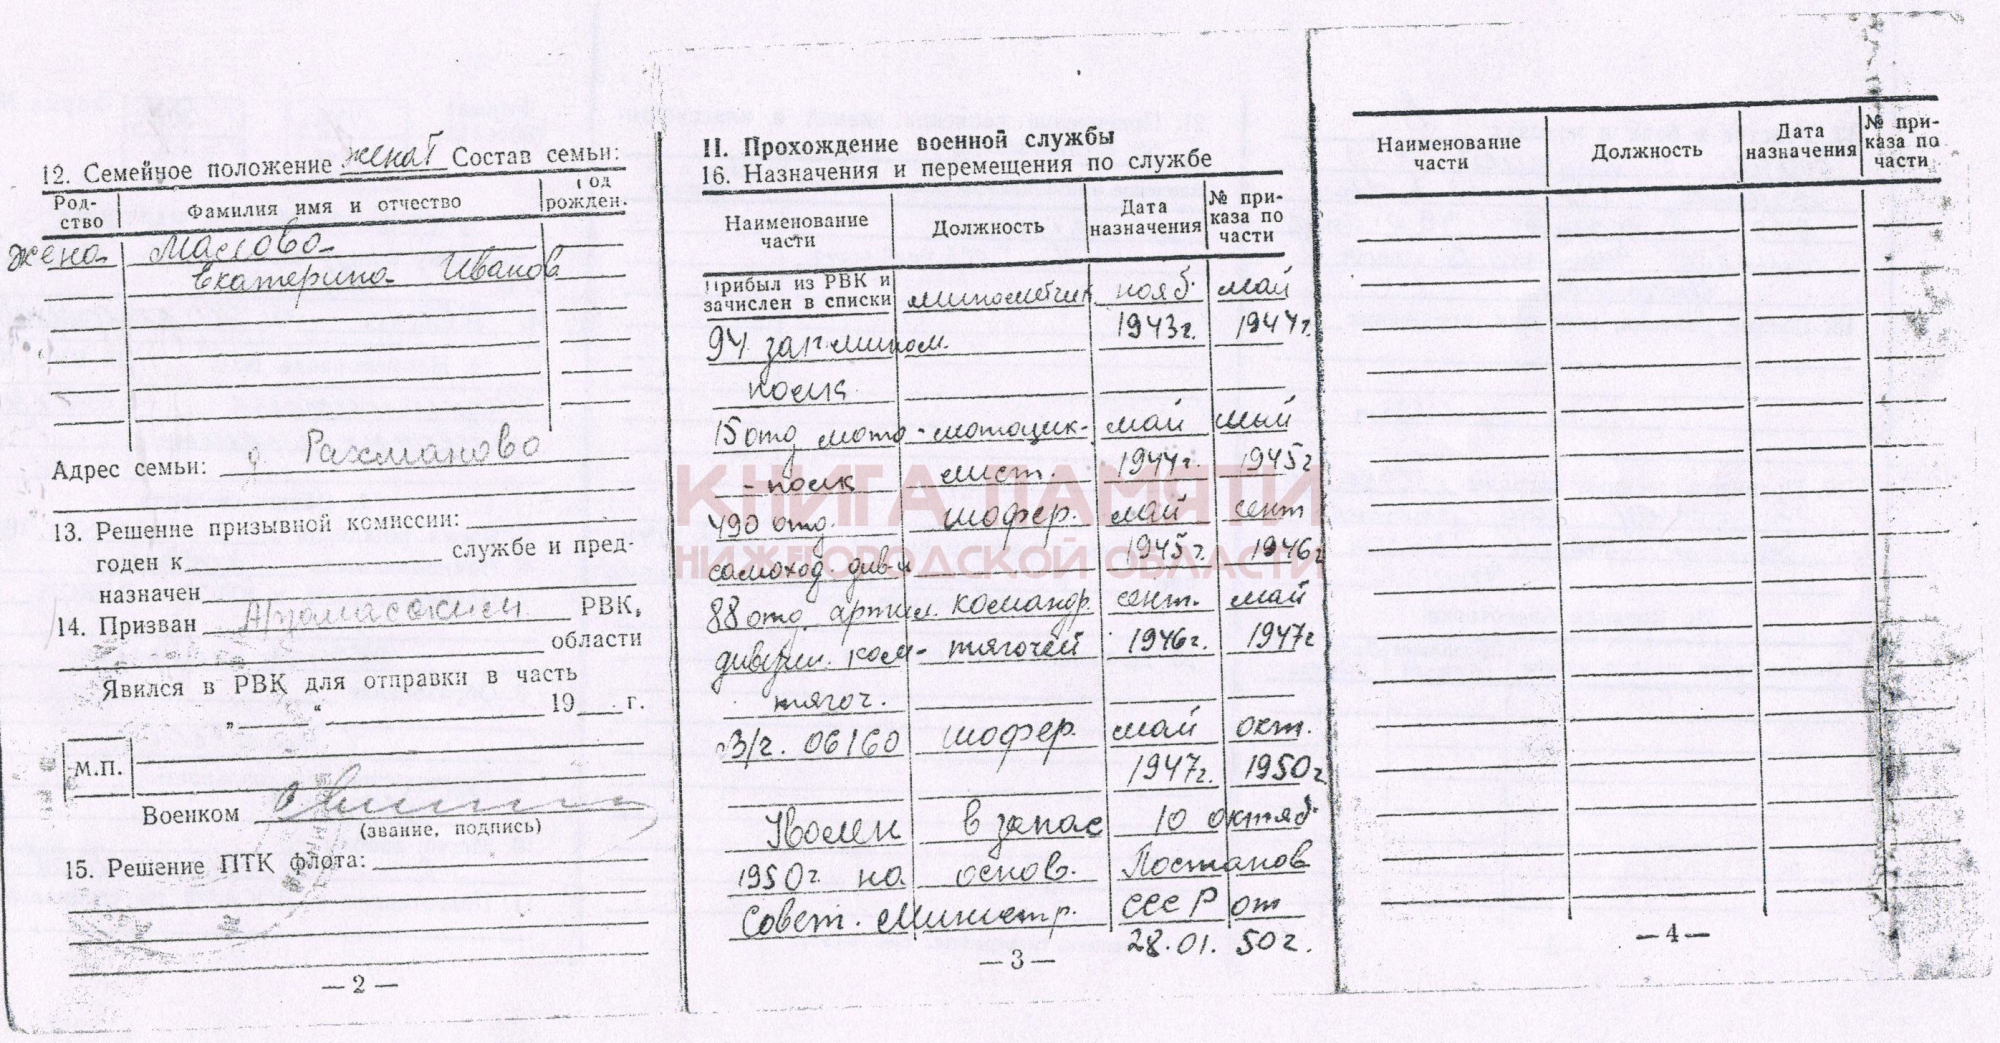 12. Семейное положение женат Состав семьи:
Род-
ство
Фамилия имя и отчество
Год
рожден.
жена Маслова
Екатерина Иванов
Адрес семьи: д. Рахманово
13. Решение призывной комиссии:
годен к службе и пред-
назначен
14. Призван Арзамасским РВК,
области
Явился в РВК для отправки в часть
„ “ 19 г.
М.П.
Военком
(звание, подпись)
15. Решение ПТК флота:
— 2 —
II. Прохождение военной службы
16. Назначения и перемещения по службе
Наименование
части
Должность
Дата
назначения
№ при-
каза по
части
Прибыл из РВК и
зачислен в списки минометчик нояб. май
94 зап. мином. 1943г. 1944г.
полк
15 отд. мото- мотоцик- май май
полк лист. 1944г. 1945г
490 отд. шофер. май сент
самоход. див-н 1945г. 1946г
88 отд. артил. командр. сент. май
дивизи. ком- тягочей 1946г. 1947г
тягоч.
В/г. 06160 шофер. май окт.
1947г. 1950г
Уволен в запас 10 октяб.
1950г на основ. Постанов
Совет. Министр. СССР от
28.01. 50г.
— 3 —
КНИГА ПАМЯТИ
НИЖЕГОРОДСКОЙ ОБЛАСТИ
Наименование
части
Должность
Дата
назначения
№ при-
каза по
части
— 4 —